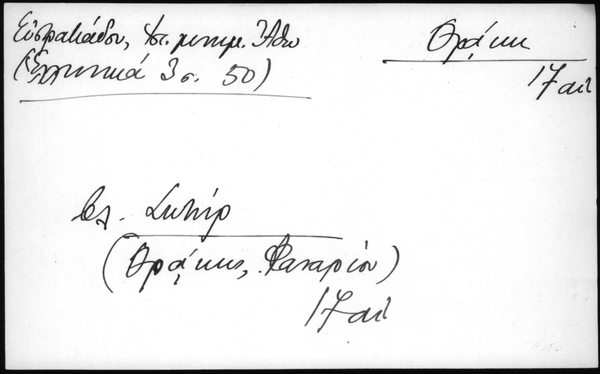 Εὐστρατιάδου, Ἱστ. μνημ. Ἄθω
(Ἑλληνικά 3 σ. 50)
Θρᾴκη
17 αἰ
βλ. Σωτήρ
(Θρᾴκης, Φαναρίου)
17 αἰ